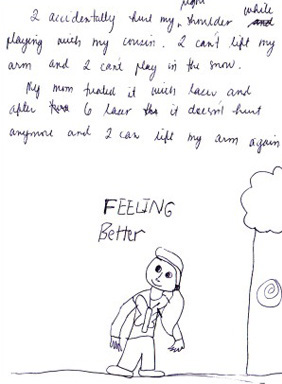 right while
I accidentally hurt my shoulder
playing with my cousin. I can't lift my
arm and I can't play in the snow.
My mom treated it with laser and
after 6 laser it doesn't hurt
anymore and I can lift my arm again
FEELING
Better